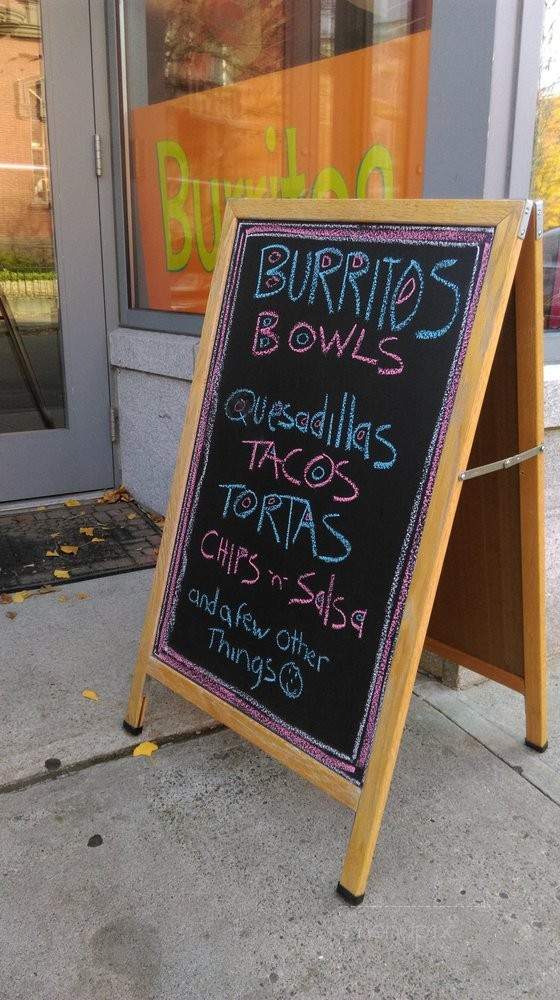 Burritos
BURRITOS
BOWLS
Quesadillas
TACOS
TORTAS
CHIPS 'n' Salsa
and a few other
Things